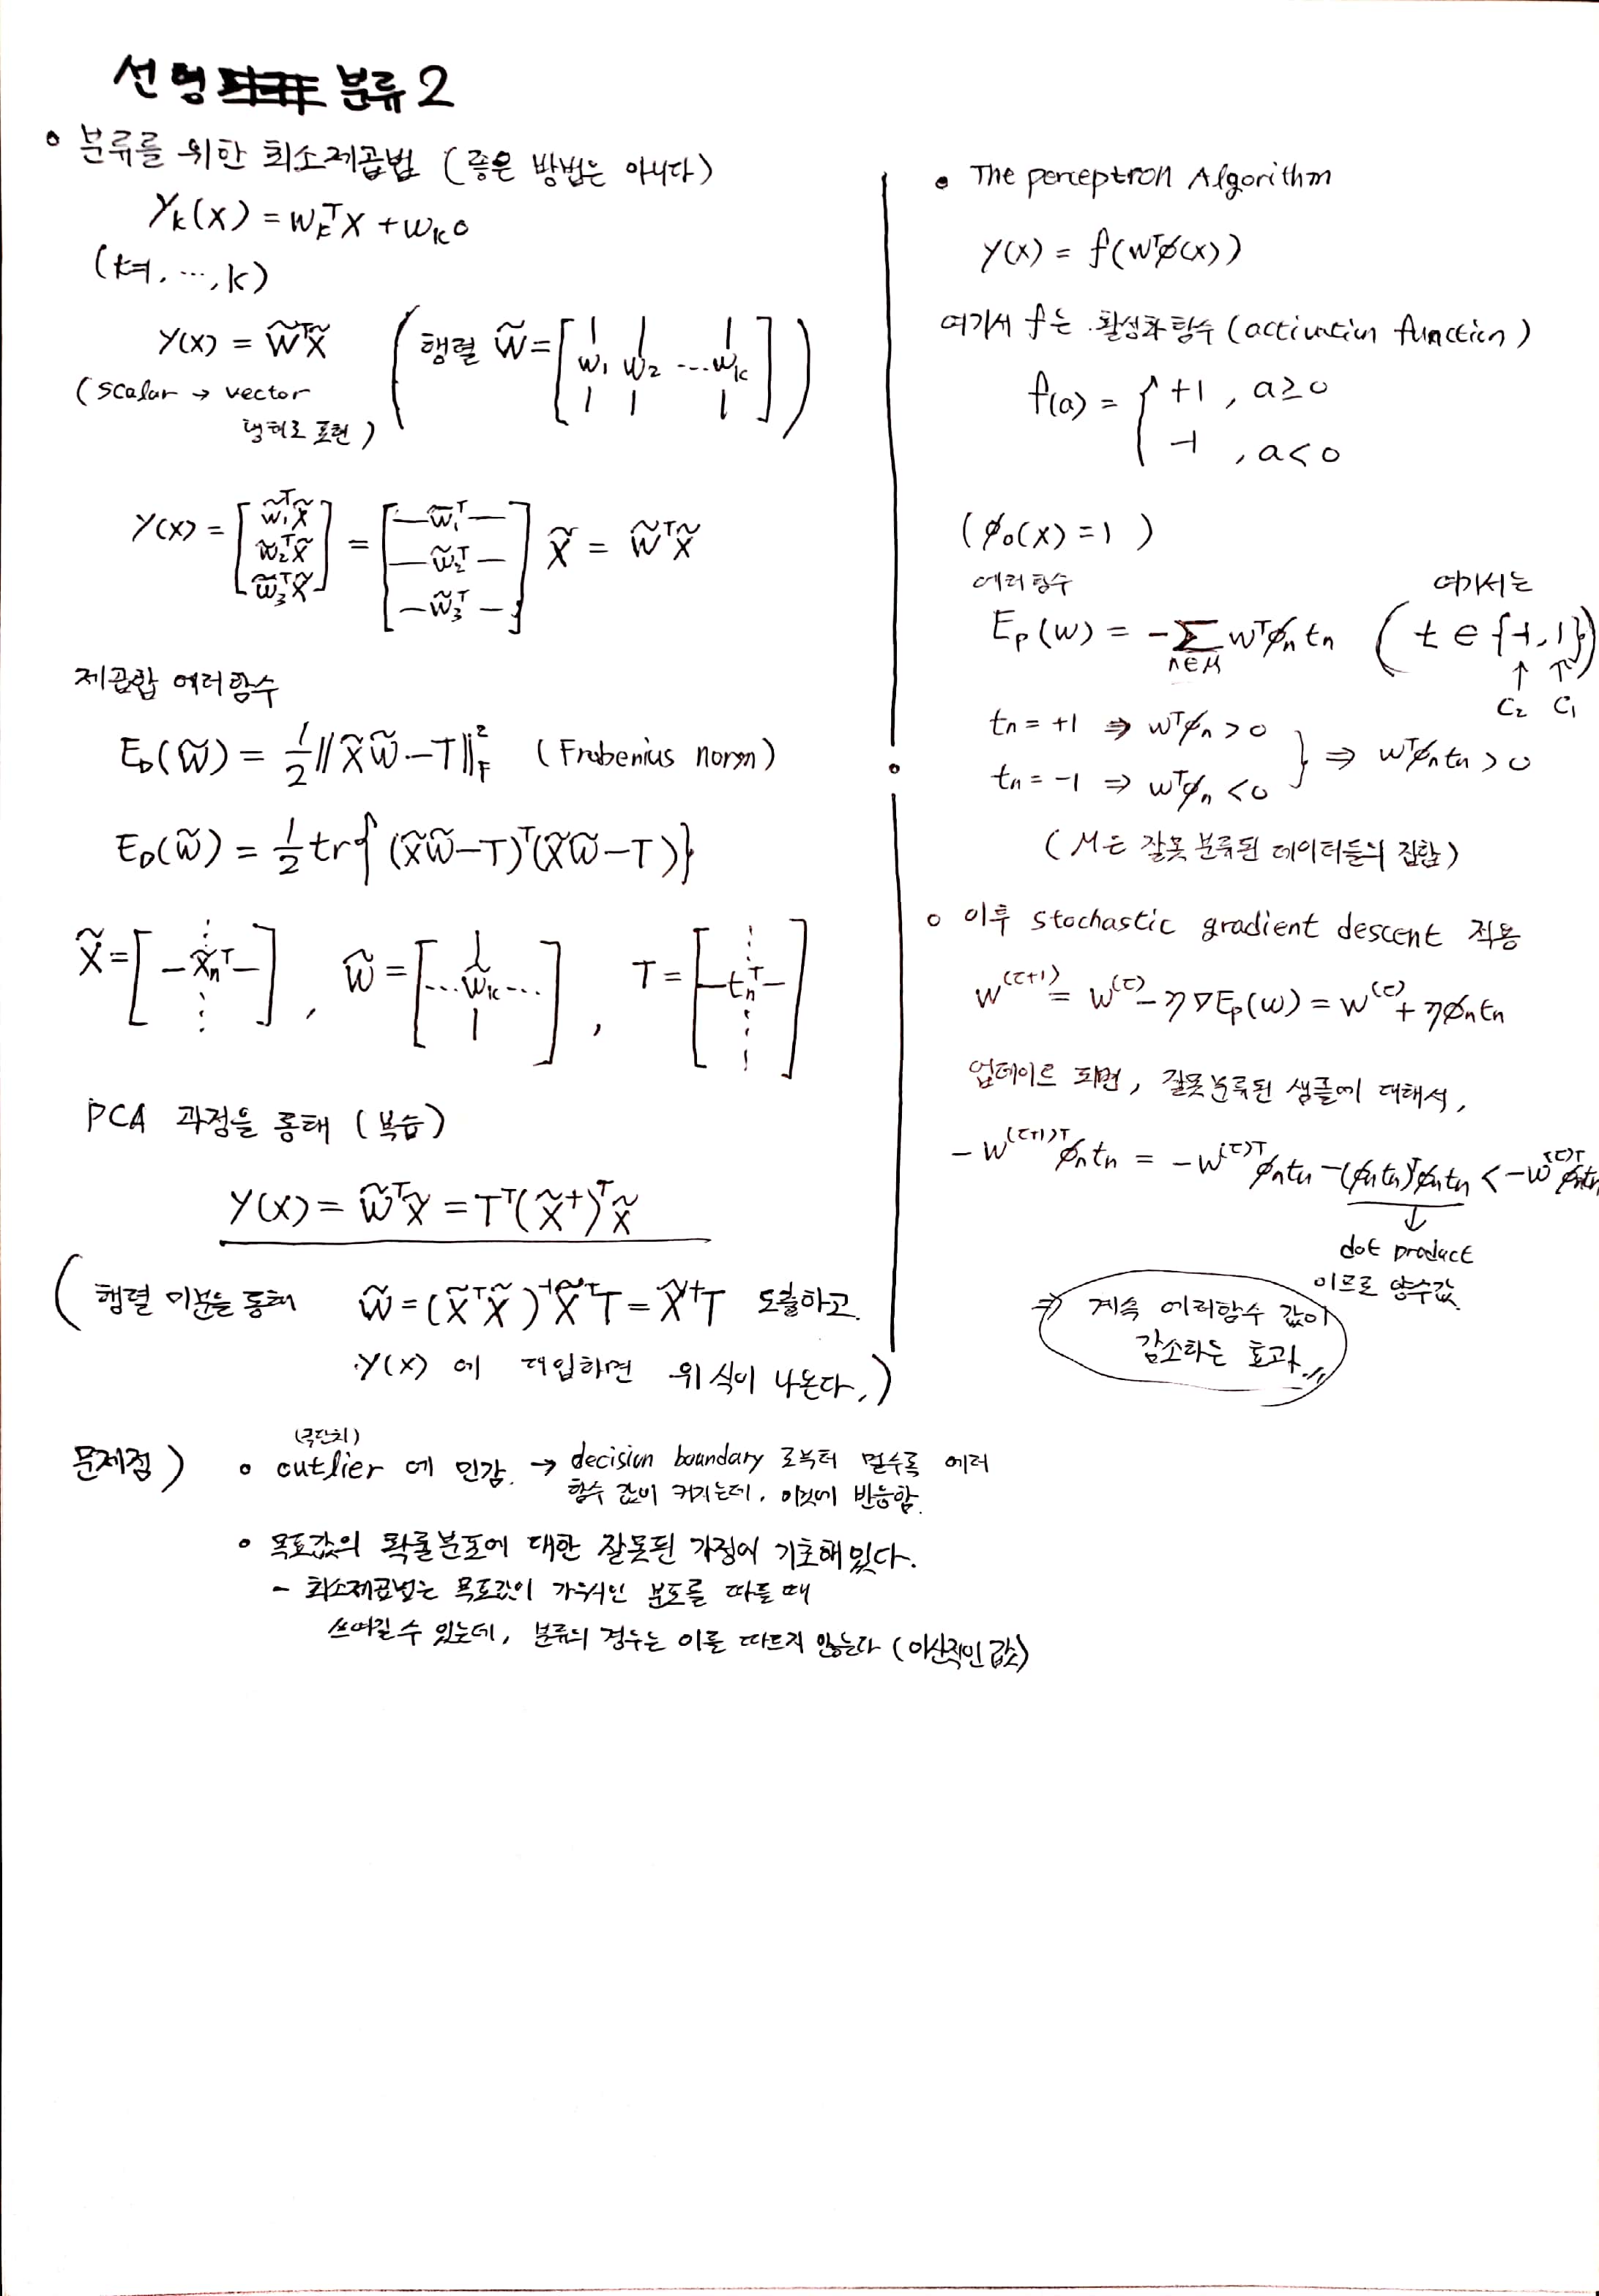 선형 분류 2
• 분류를 위한 최소제곱법 (좋은 방법은 아니다)
y_k(x) = w_k^T x + w_k0
(k=1, ..., k)
y(x) = W̃^T x̃ ( 행렬 W̃ = [ w₁ w₂ ... w_k ] )
(scalar → vector
형태로 표현)
y(x) = [ w̃₁^T x̃ ; w̃₂^T x̃ ; w̃₃^T x̃ ] = [ —w̃₁^T— ; —w̃₂^T— ; —w̃₃^T— ] x̃ = W̃^T x̃
제곱합 에러함수
E_D(W̃) = 1/2 ‖X̃W̃ - T‖²_F (Frobenius norm)
E_D(W̃) = 1/2 tr{ (X̃W̃ - T)^T (X̃W̃ - T) }
X̃ = [ —x̃_n^T— ], W̃ = [ ... w̃_k ... ], T = [ —t_n^T— ]
PCA 과정을 통해 (복습)
y(x) = W̃^T x̃ = T^T (X̃^+)^T x̃
( 행렬 미분을 통해 W̃ = (X̃^T X̃)^-1 X̃^T T = X̃^+ T 도출하고
y(x) 에 대입하면 위 식이 나온다.)
문제점) • outlier 에 민감. → decision boundary 로부터 멀수록 에러
(극단치)
함수 값이 커지는데, 이것에 반응함.
• 목표값의 확률분포에 대한 잘못된 가정에 기초해있다.
- 최소제곱법은 목표값이 가우시안 분포를 따를 때
쓰여질 수 있는데, 분류의 경우는 이를 따르지 않는다 (이산적인 값)
• The perceptron Algorithm
y(x) = f(w^T φ(x))
여기서 f는 활성화 함수 (activation function)
f(a) = { +1 , a ≥ 0
-1 , a < 0
(φ₀(x) = 1 )
에러함수
E_p(w) = -Σ_{n∈M} w^T φ_n t_n ( t ∈ {-1, 1} )
여기서는
↑ ↑
C₂ C₁
t_n = +1 ⇒ w^T φ_n > 0
t_n = -1 ⇒ w^T φ_n < 0 } ⇒ w^T φ_n t_n > 0
(M은 잘못 분류된 데이터들의 집합)
• 이후 stochastic gradient descent 적용
w^(τ+1) = w^(τ) - η∇E_p(w) = w^(τ) + ηφ_n t_n
업데이트 되면, 잘못 분류된 샘플에 대해서,
-w^(τ+1)T φ_n t_n = -w^(τ)T φ_n t_n - (φ_n t_n)^T φ_n t_n < -w^(τ)T φ_n t_n
↓
dot product
이므로 양수값.
⇒ 계속 에러함수 값이
감소하는 효과.